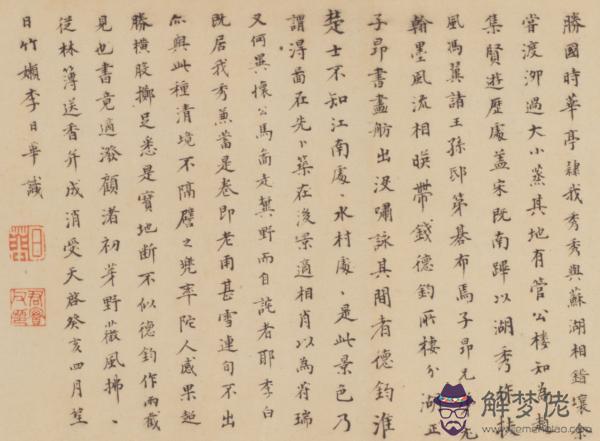 勝國時華亭隸我秀秀與蘇湖相錯壤
嘗渡泖過大小蒸其地有管公樓知為
集賢遊歷處蓋宋既南蹕以湖秀作扶
風馮翼諸王孫邸第碁布焉子昂尤
翰墨風流相暎帶錢德鈞所棲分湖正
子昂書畫舫出沒嘯詠其間者德鈞淮
楚士不知江南處、水村處、是此景色乃
謂得啚在先卜築在後景適相肖以為符瑞
又何異懷公馬啚走冀野而自詫者耶李白
既居我秀兼蓄是卷即老甫甚雪連旬不出
亦與此種清境不隔譬之兜率陀人感果超
勝橫股擲足悉是寶地斷不似德鈞作兩截
見也書竟適潑顧渚初芽野薇風拂、
從林薄送香并成消受天啓癸亥四月望
日竹嬾李日華識
日華
解梦佬